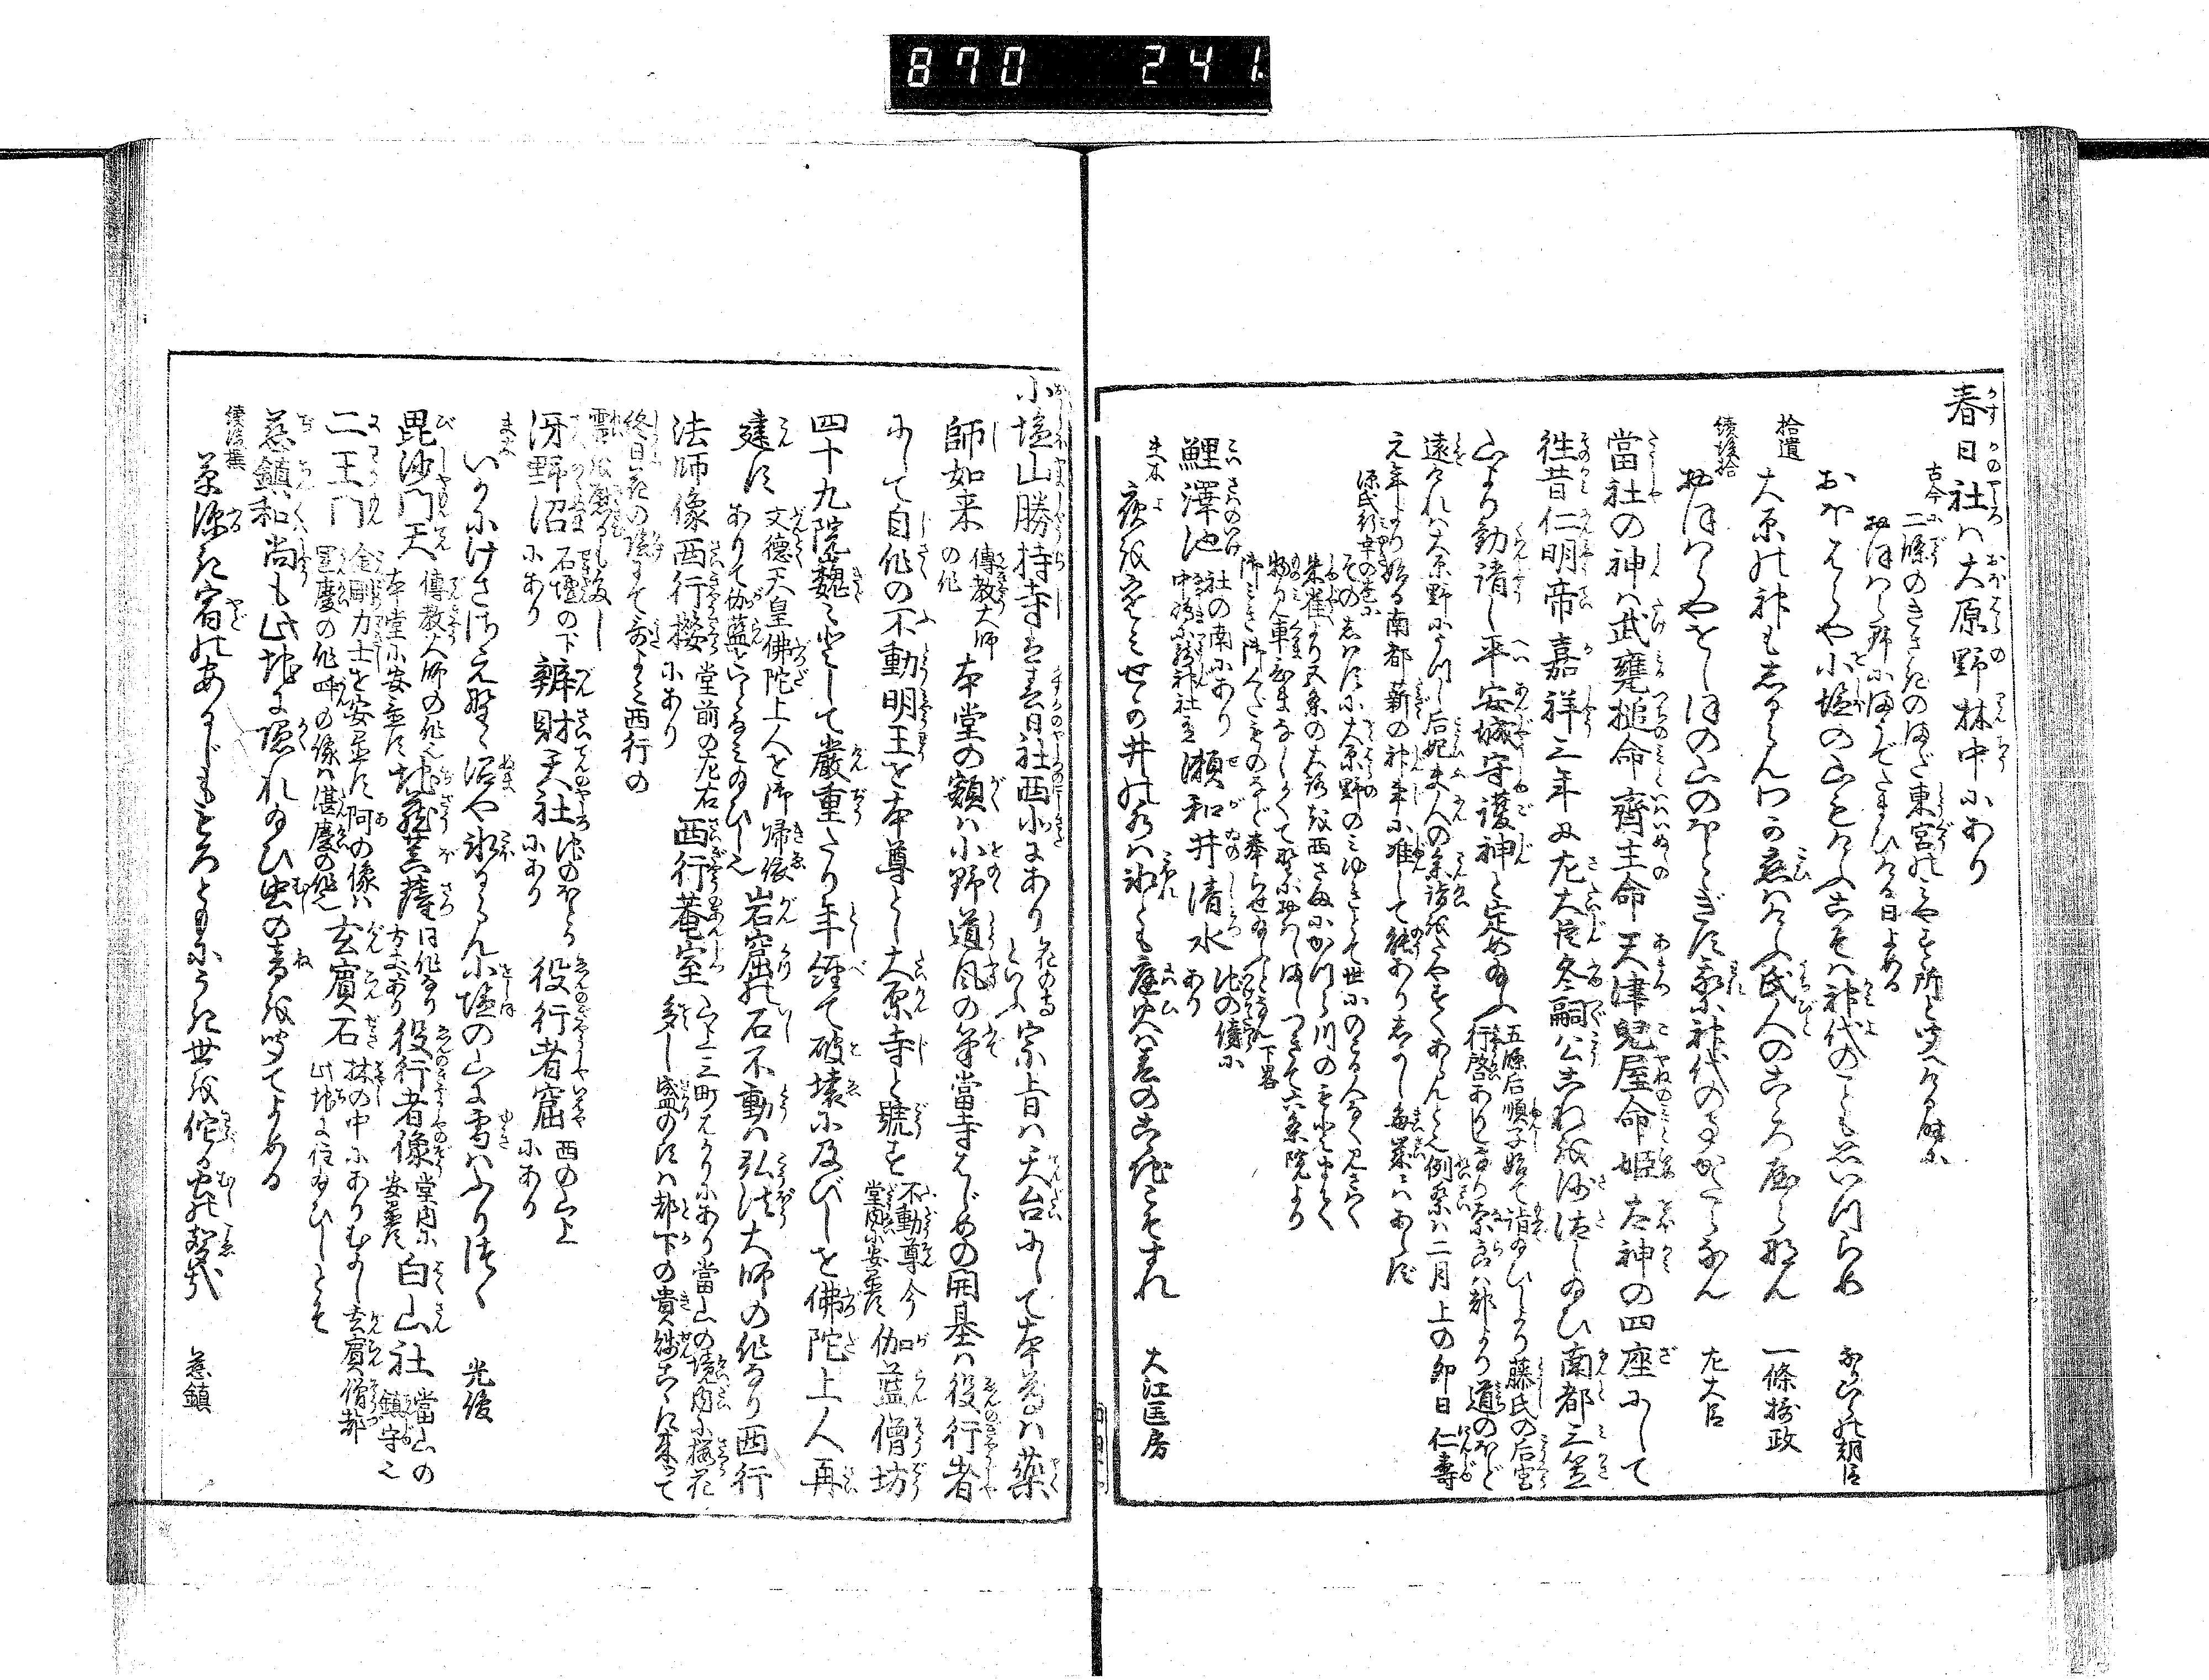 870 241
春日社ハ大原野林中にあり
古今
二條のきさきのまだ東宮のみやす所と聞へける時に
おほはら野にまうでたまひける日よめる
おほはらや小塩の山もけふこそハ神代のことも思ひ出らめ なりひらの朝臣
拾遺
大原の神もしるらんわか恋ハけふ氏人のこゝろやらなん 一條摂政
續後拾
おほはらやをしほの山のほとゝぎす我に神代の事かたらなん 左大臣
當社の神ハ武甕槌命齊主命天津兒屋命姫太神の四座にして
徃昔仁明帝嘉祥三年に左大臣冬嗣公これを沙汰し給ひ南都三笠
山より勧請し平安城守護神と定め給ふ
五條后順子始て詣給ひしより藤氏の后宮
行啓ありしなり奈良ハ都より道のほど
遠けれハ大原野にうつし后妃夫人の参詣をたやすくあらんと也例祭ハ二月上の卯日仁壽
元年より始る南都薪の神事に准して能ありしかし毎歳ハあらず
源氏行幸の巻に
そのしハすに大原野のみゆきとて世にのこる人なく見さわく
朱雀より五条の大路を西さまにかつら川のもとまて
物見車ひまなしかくて野におハしましつきて六条院より
御みき御くだものなど奉らせ給へり下畧
鯉澤池 社の南にあり
瀬和井清水 池の傍にあり
夫木
夜を寒ミせがの井の水ハ氷とも庭火ハ春のこゝ地こそすれ 大江匡房
小塩山勝持寺ハ春日社西北にあり 花の寺といふ 宗旨ハ天台にして本尊ハ藥
師如来 傳教大師の作 本堂の額ハ小野道風の筆當寺はじめの開基ハ役行者
にして自作の不動明王を本尊とし大原寺と號す 不動尊今口堂内に安置す 伽藍僧坊
四十九院巍々として嚴重たり年經て破壊に及びしを佛陀上人再
建す 文徳天皇佛陀上人を御歸依ありて伽藍をいとなミ給ひし也 岩窟の石不動ハ弘法大師の作なり西行
法師像西行櫻 堂前の左右にあり 西行菴室 山上三町はかりにあり當山の境内に櫻花
多し盛のほハ都下の貴賤こゝに来つて
終日花の陰にて哥よミ西行の
雪を慰るも多し
冴野沼 石壇の下にあり 辨財天社 沼のほとりにあり 役行者窟 西の山上にあり
夫木
いかにけさ冴え野の沼や氷るらん小塩の山に雪ハふりつゝ 光俊
毘沙門天 傳教大師の作也本堂に安置す 地蔵菩薩 同作なり方丈にあり 役行者像 堂内に安置す 白山社 當山の鎮守也
二王門 金剛力士を安置す阿の像ハ運慶の作吽の像ハ湛慶の作也 玄賓石 林の中にありむかし玄賓僧都此地に住給ひしとそ
慈鎮和尚も此地に隠れ給ひ虫の音を聞てよめる
續後撰
草深き宿のあるじもとろともにうき世を侘る虫の聲哉 慈鎮